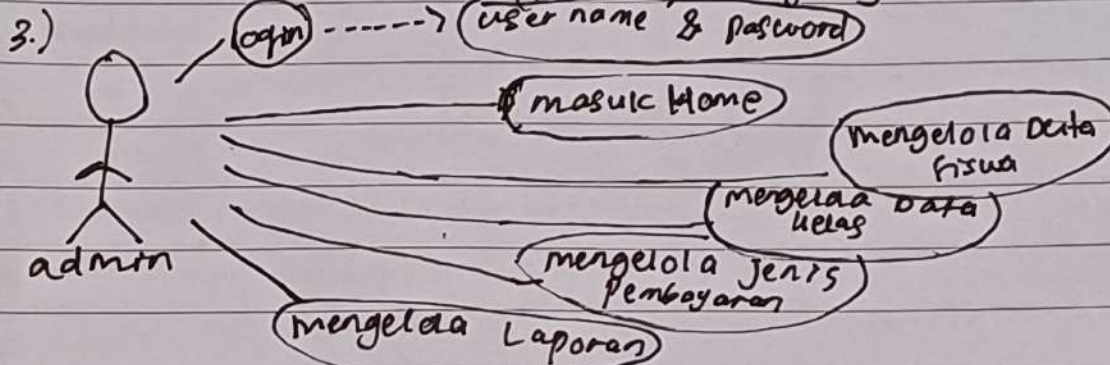 3.)
login
username & Password
masuk Home
mengelola Data
siswa
mengelola Data
kelas
mengelola Jenis
Pembayaran
mengelola Laporan
admin